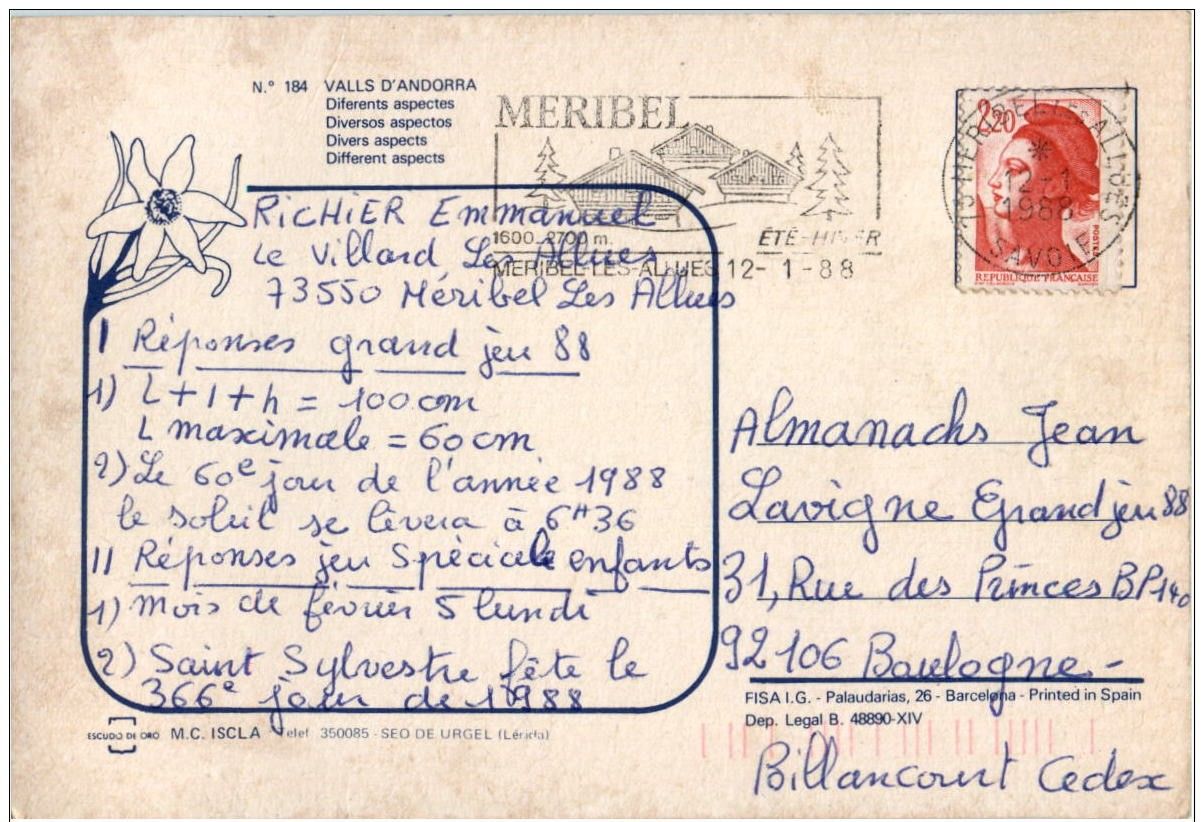 N.º 184 VALLS D'ANDORRA
Diferents aspectes
Diversos aspectos
Divers aspects
Different aspects
MERIBEL
1600 2700 m.
ÉTÉ-HIVER
MERIBEL-LES-ALLUES 12- 1 - 88
2,20
73 MERIBEL LES ALLUES
12 - 1
1988
SAVOIE
POSTES
REPUBLIQUE FRANÇAISE
RiCHiER Emmanuel
Le Villard Les Allues
73550 Méribel Les Allues
I Réponses grand jeu 88
1) L + l + h = 100 cm
L maximale = 60 cm
2) Le 60e jour de l'année 1988
le soleil se lèvera à 6H36
II Réponses jeu Spéciale enfants
1) mois de février 5 lundi
2) Saint Sylvestre fête le
366e jour de 1988
Almanachs Jean
Lavigne Grand jeu 88
31, Rue des Princes BP140
92106 Boulogne -
Billancourt Cedex
FISA I.G. - Palaudarias, 26 - Barcelona - Printed in Spain
Dep. Legal B. 48890-XIV
ESCUDO DE ORO M.C. ISCLA Telef. 350085 - SEO DE URGEL (Lérida)